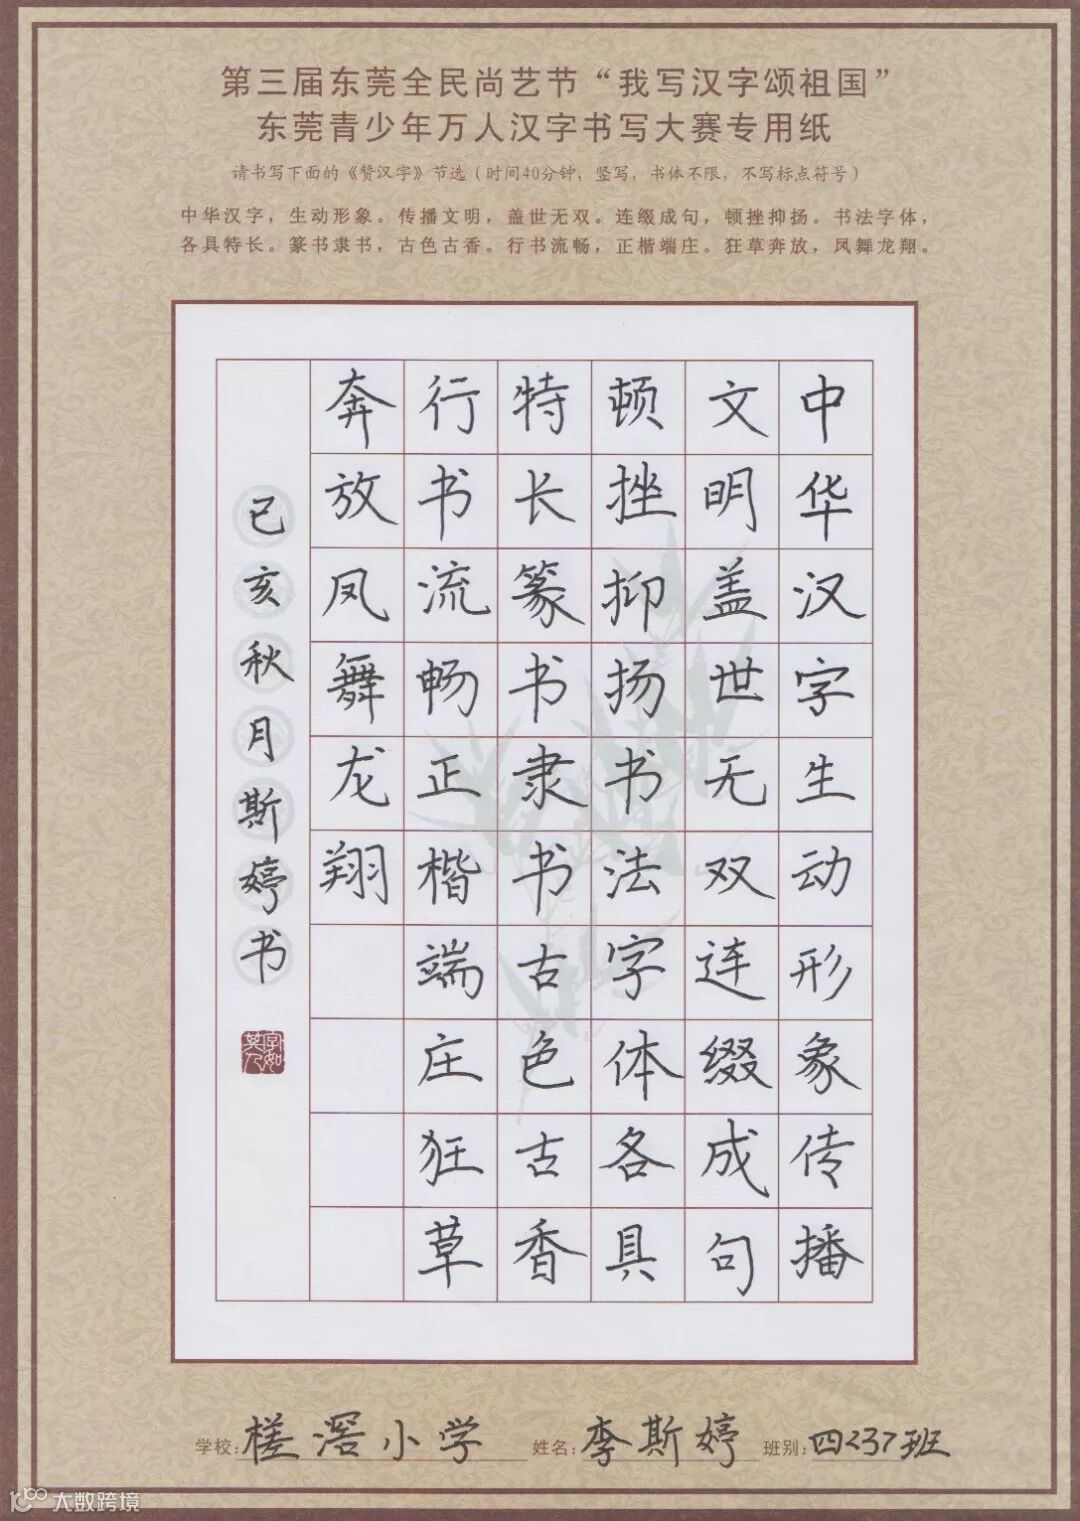 第三届东莞全民尚艺节“我写汉字颂祖国”
东莞青少年万人汉字书写大赛专用纸
请书写下面的《赞汉字》节选（时间40分钟，竖写，书体不限，不写标点符号）
中华汉字，生动形象。传播文明，盖世无双。连缀成句，顿挫抑扬。书法字体，
各具特长。篆书隶书，古色古香。行书流畅，正楷端庄。狂草奔放，凤舞龙翔。
中华汉字生动形象传播
文明盖世无双连缀成句
顿挫抑扬书法字体各具
特长篆书隶书古色古香
行书流畅正楷端庄狂草
奔放凤舞龙翔
已亥秋月斯婷书
字如其人
学校：槎滘小学 姓名：李斯婷 班别：四（3）班
大数跨境